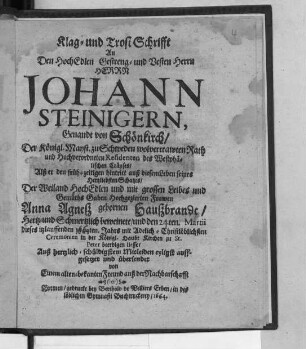 Klag- und Trost Schrifft
An
Den HochEdlen Gestreng- und Vesten Herrn
HERRN
JOHANN
STEINIGERN,
Genandt von Schönkirch/
Der Königl. Mayst. zu Schweden wolvertrawten Rath
und Hochverordneten Residenten des Westphä-
lischen Cräyses/
Alß er den früh-zeitigen hintrit auß diesem Leben seines
Hertzliebsten Schatzes/
Der Weiland HochEdlen und mit grossen Leibes und
Gemüths Gaben Hochgezierten Frawen
Anna Agneß gebornen Haußbrandt/
Hertz- und Schmertzlich beweinete/ und den 24ten. Martii
dieses 1664sten Jahrs mit Adelich- Christlöblichsten
Ceremonien in der Königl. Haubt Kirchen zu St.
Peter beerdigen liesse/
Auß hertzlich- schuldigstem Mitleiden eyligst auff-
gesetzet und übersendet
von
Einem alten/ bekanten Freund auß der Nachbarschafft
gedruckt bey Berthold de Villiers Erben/ in des
löblichen Gymnasii Buchtruckerey/ 1664.